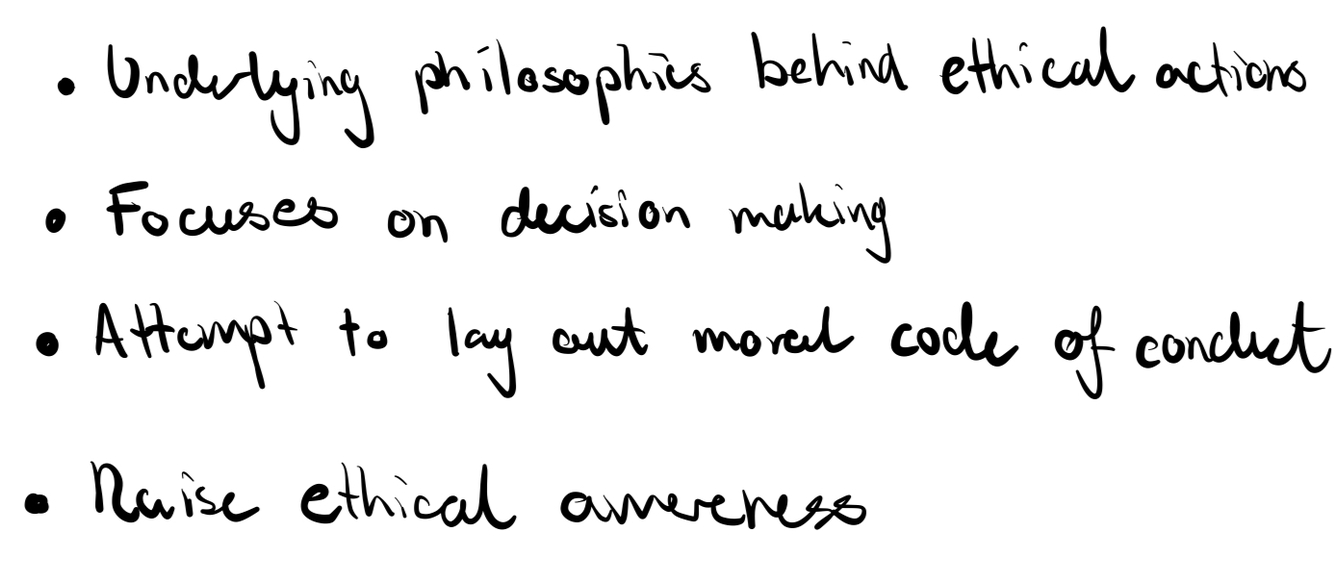 • Underlying philosophies behind ethical actions
• Focuses on decision making
• Attempt to lay out moral code of conduct
• Raise ethical awareness